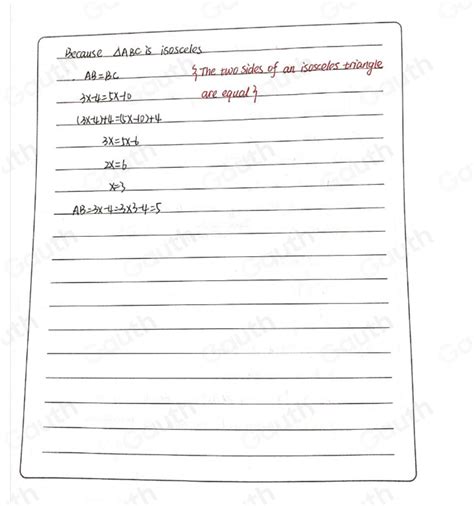 Because △ABC is isosceles
. AB=BC {The two sides of an isosceles triangle
3x-4=5x-10 are equal}
(3x-4)+4=(5x-10)+4
3x=5x-6
2x=6
x=3
AB=3x-4=3x3-4=5